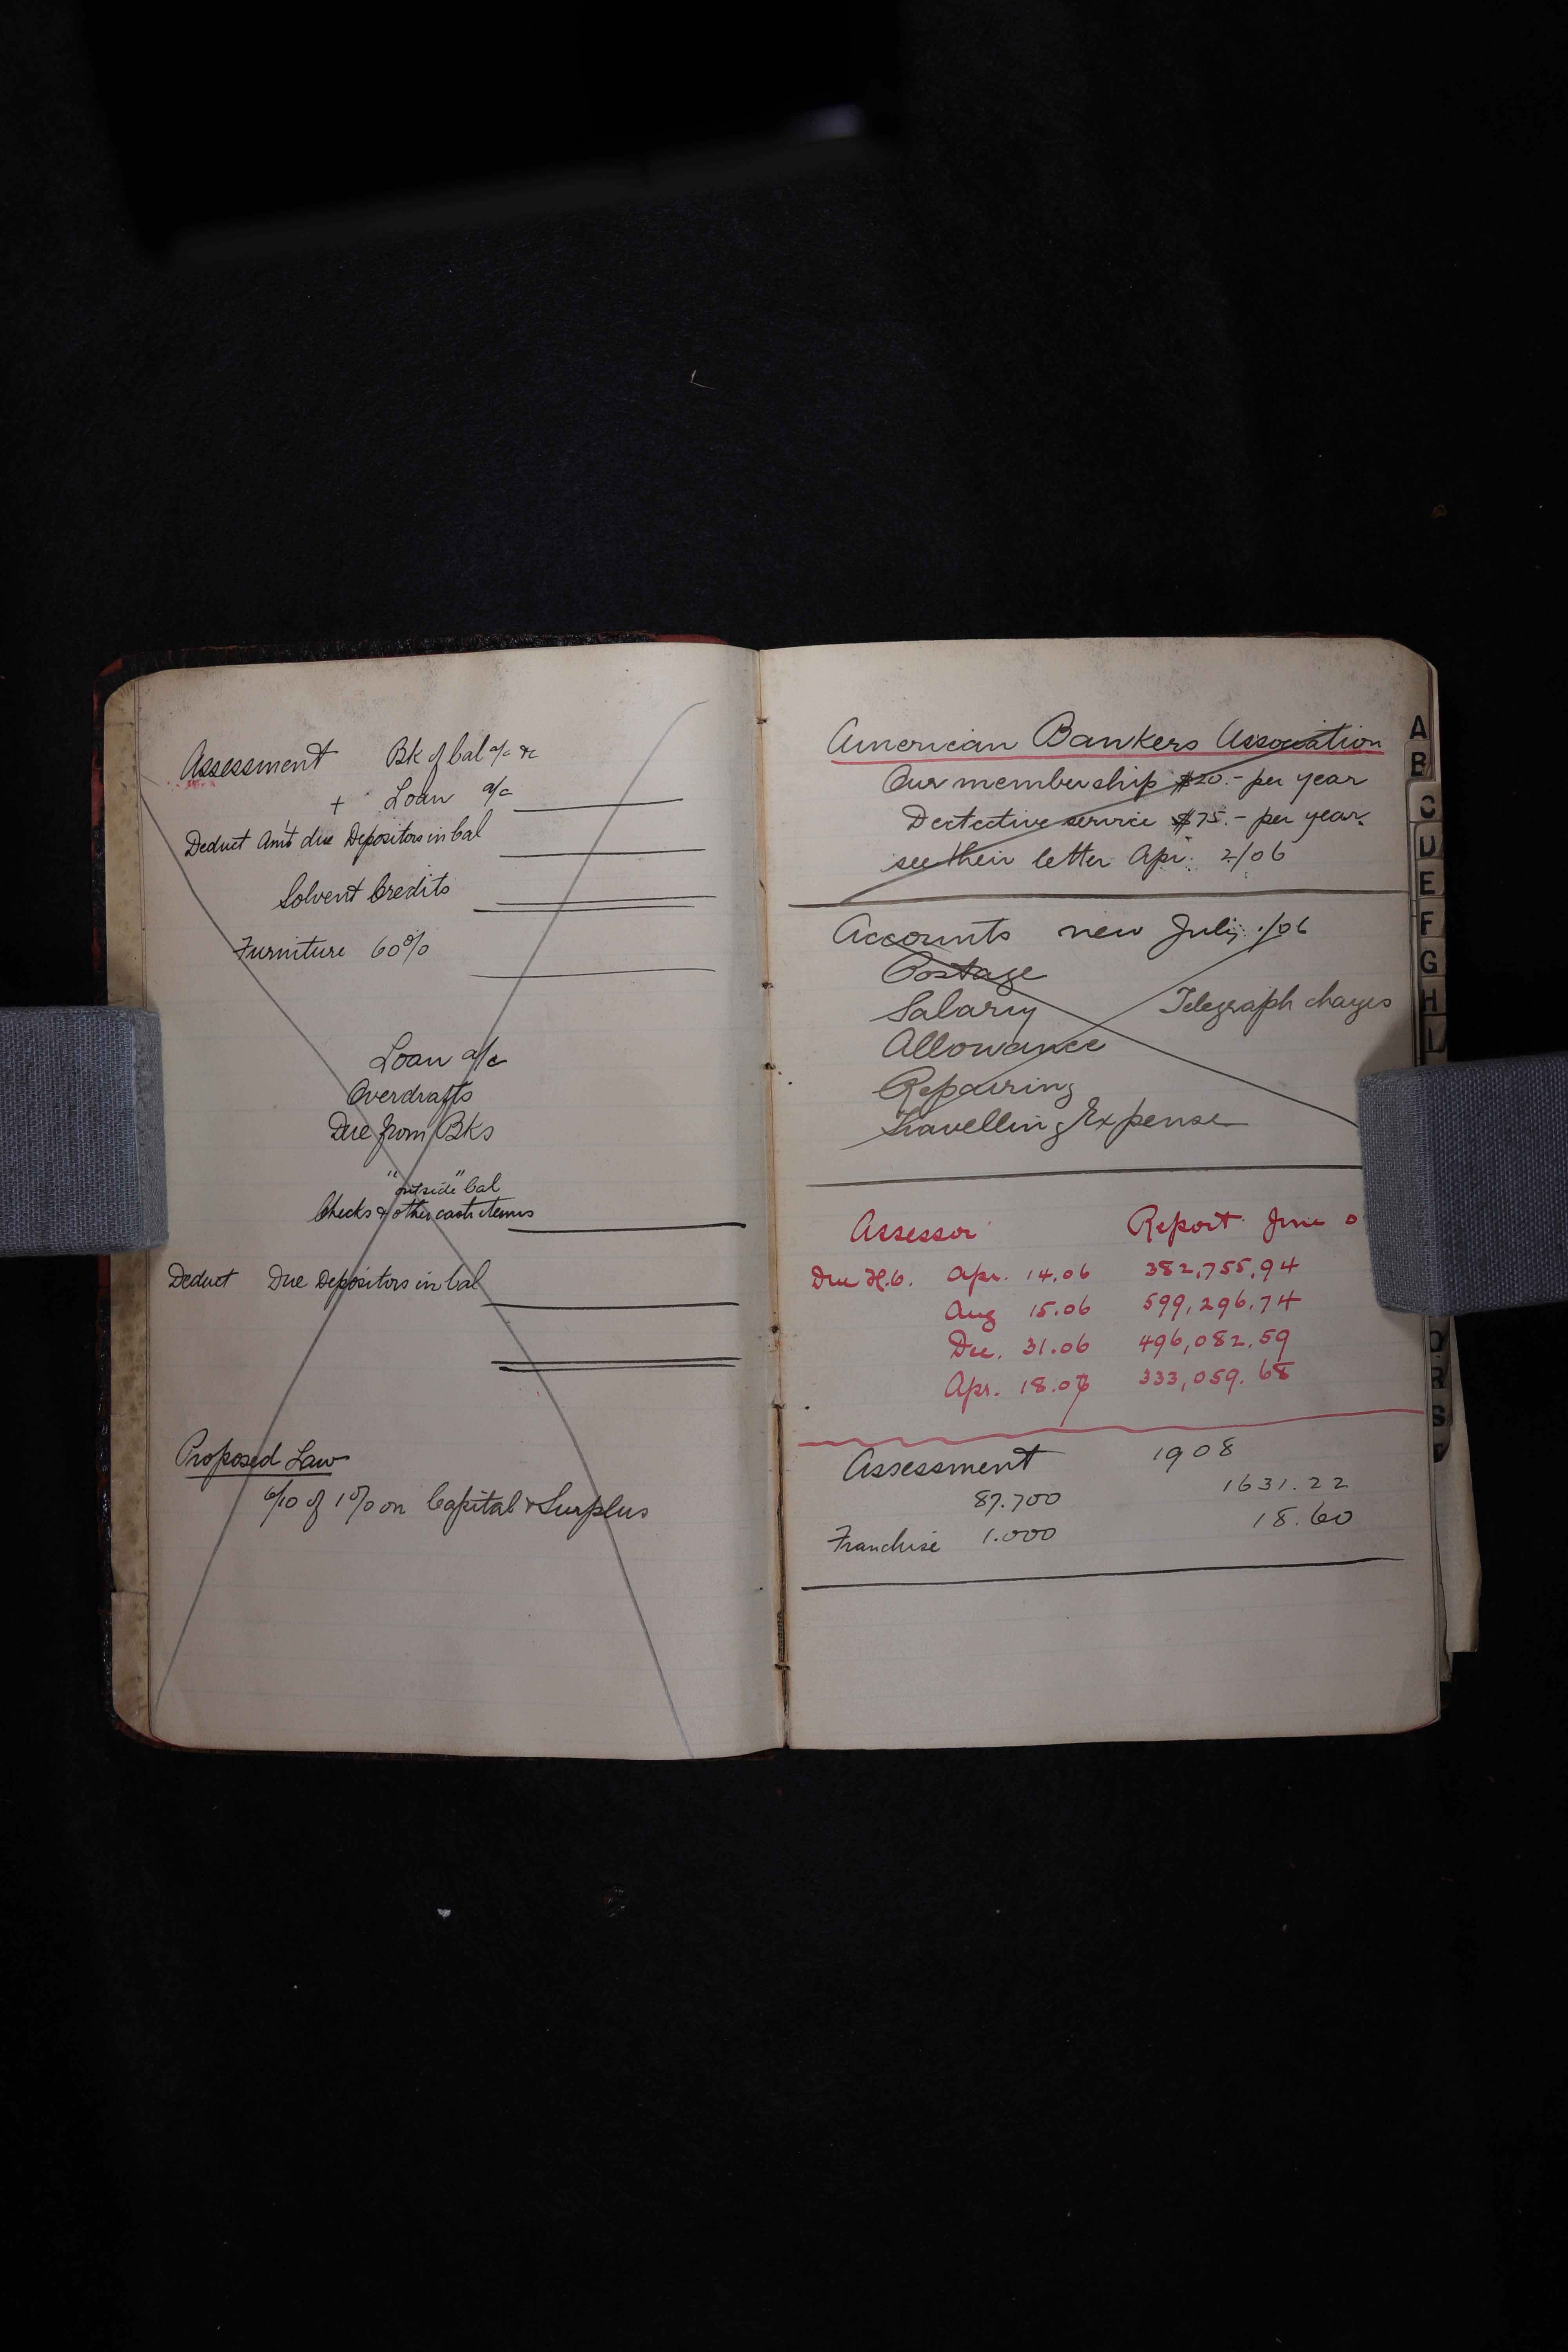 Assessment Bk of Cal a/c &c
+ Loan a/c
Deduct Am't due Depositors in Cal
Solvent Credits
Furniture 60%
Loan a/c
Overdrafts
Due from Bks
"outside" Cal
Checks & other cash items
Deduct Due Depositors in Cal
Proposed Law
6/10 of 1% on Capital & Surplus
American Bankers Association
Our membership $20.- per year
Dectective service $75.- per year.
see their letter Apr. 2/06
Accounts new July 1/06
Postage
Salary Telegraph charges
Allowance
Repairing
Travelling Expense
Assessor Report June 0
Due H.O. Apr. 14.06 382,755.94
Aug 15.06 599,296.74
Dec. 31.06 496,082.59
Apr. 18.07 333,059.68
Assessment 1908
87.700 1631.22
Franchise 1.000 18.60
A
B
C
D
E
F
G
H
I
O
R
S
T